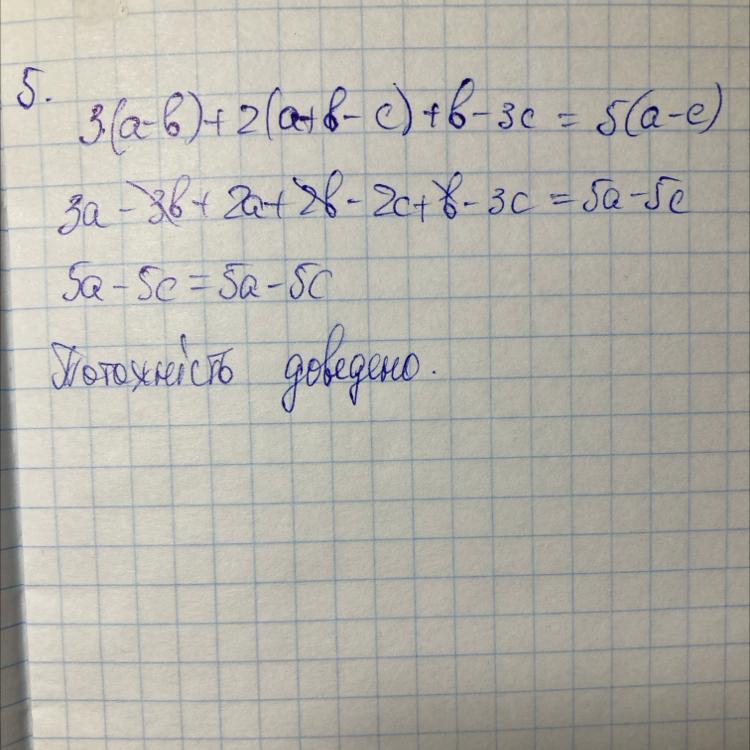 5.
3(a-b)+2(a+b-c)+b-3c=5(a-c)
3a-3b+2a+2b-2c+b-3c=5a-5c
5a-5c=5a-5c
Тотожність доведено.